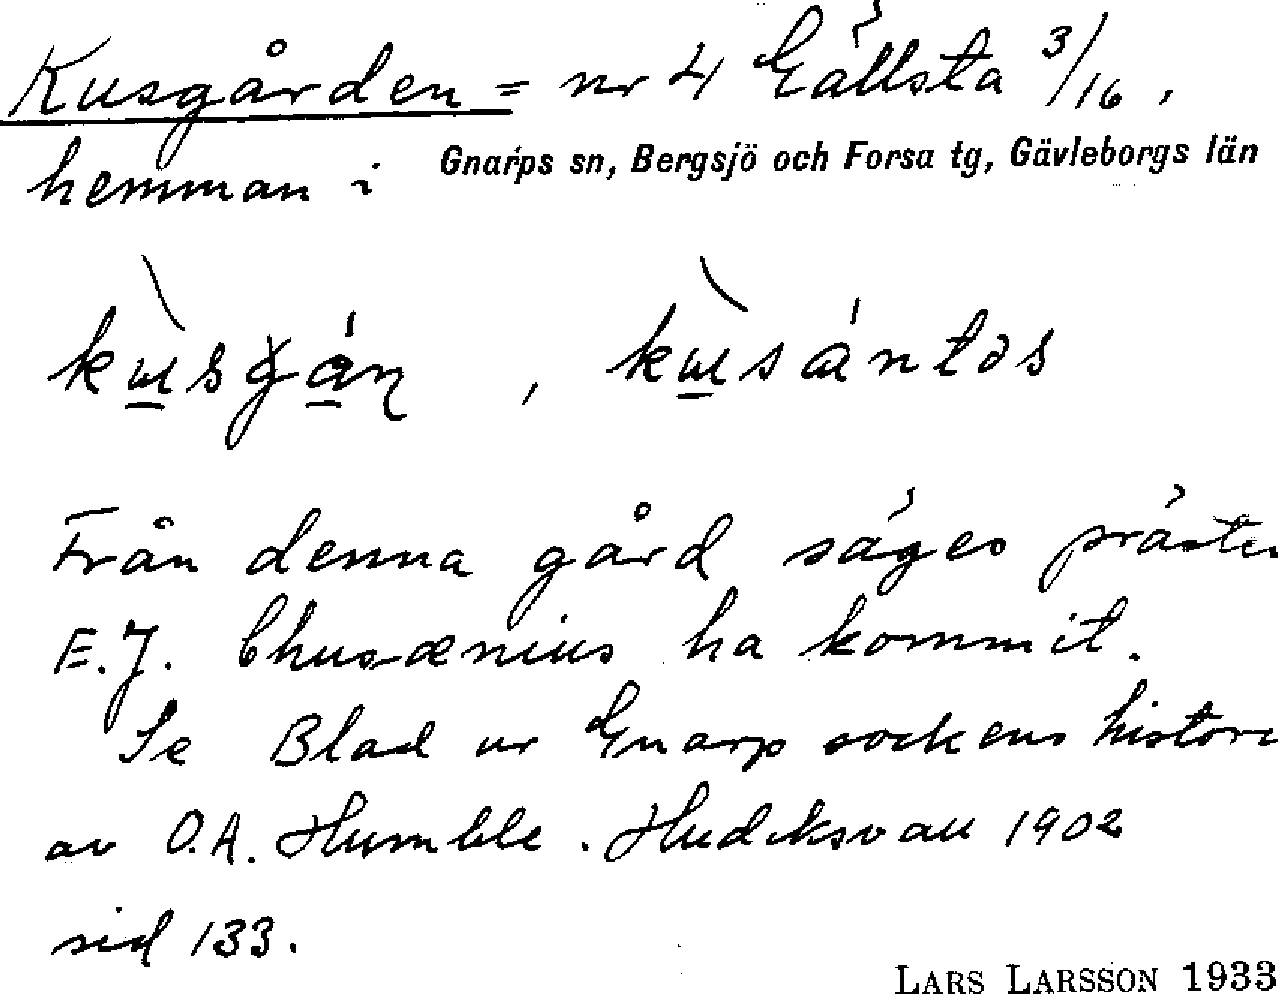 Kusgården = nr 4 Gällsta 3/16,
hemman i Gnarps sn, Bergsjö och Forsa tg, Gävleborgs län
Från denna gård säges präste
E.J. Chusænius ha kommit.
Se Blad ur Gnarp sockens histori
av O.A. Humble. Hudiksvall 1902
sid 133.
LARS LARSSON 1933